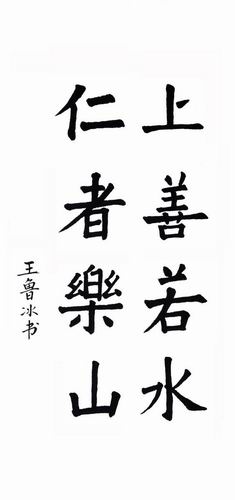 上善若水
仁者樂山
王鲁冰书